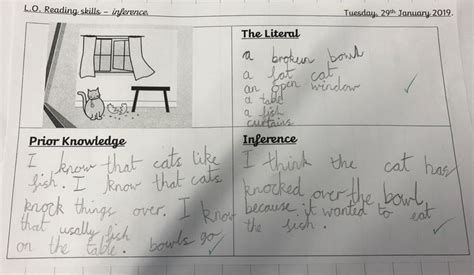 L.O. Reading skills – inference.
Tuesday, 29th January 2019.
The Literal
a broken bowl
a fat cat
an open window
a table
a fish
curtains
Prior Knowledge
I know that cats like
fish. I know that cats
knock things over. I know
that usally fish
bowls go
on the table.
Inference
I think the cat has
knocked over the bowl
because it wanted to eat
the fish.